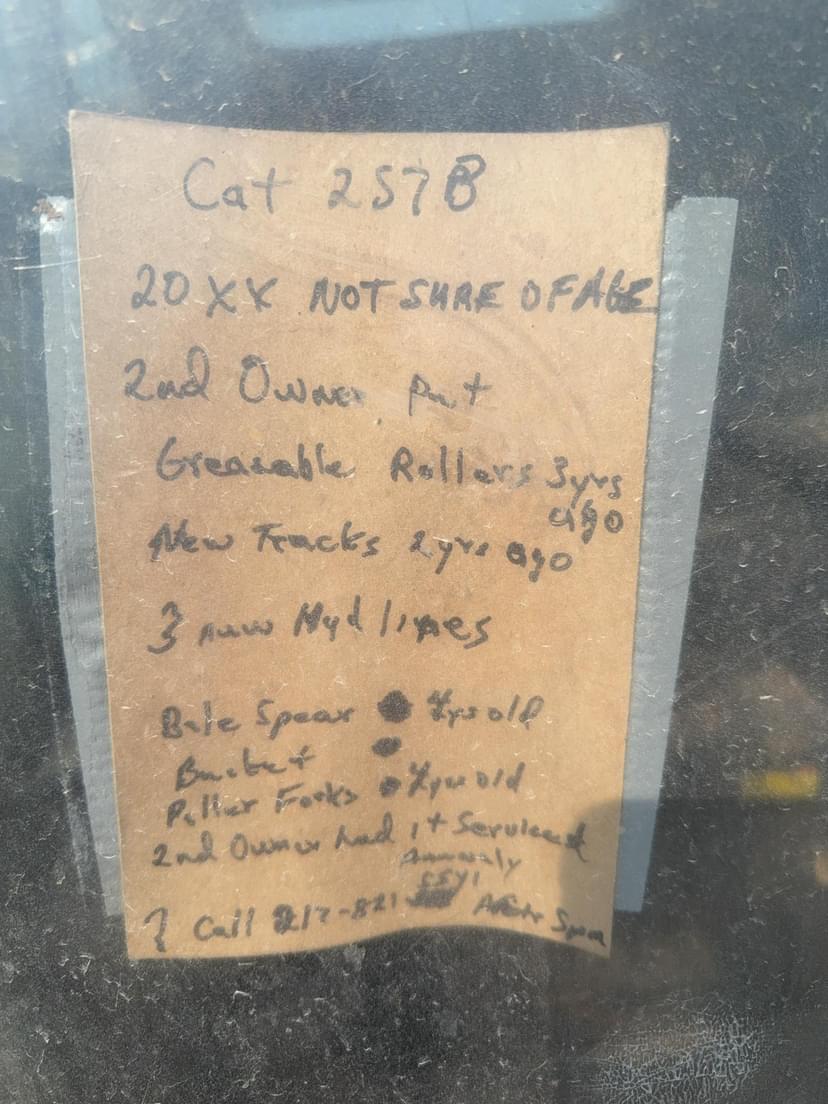 Cat 257B
20XX NOT SURE OF AGE
2nd Owner put
Greasable Rollers 3yrs
ago
New Tracks 2yrs ago
3 new Hyd lines
Bale Spear yrs old
Bucket
Pallet Forks yrs old
2nd Owner had it Serviced
Annualy
? Call 217-821
After 5pm